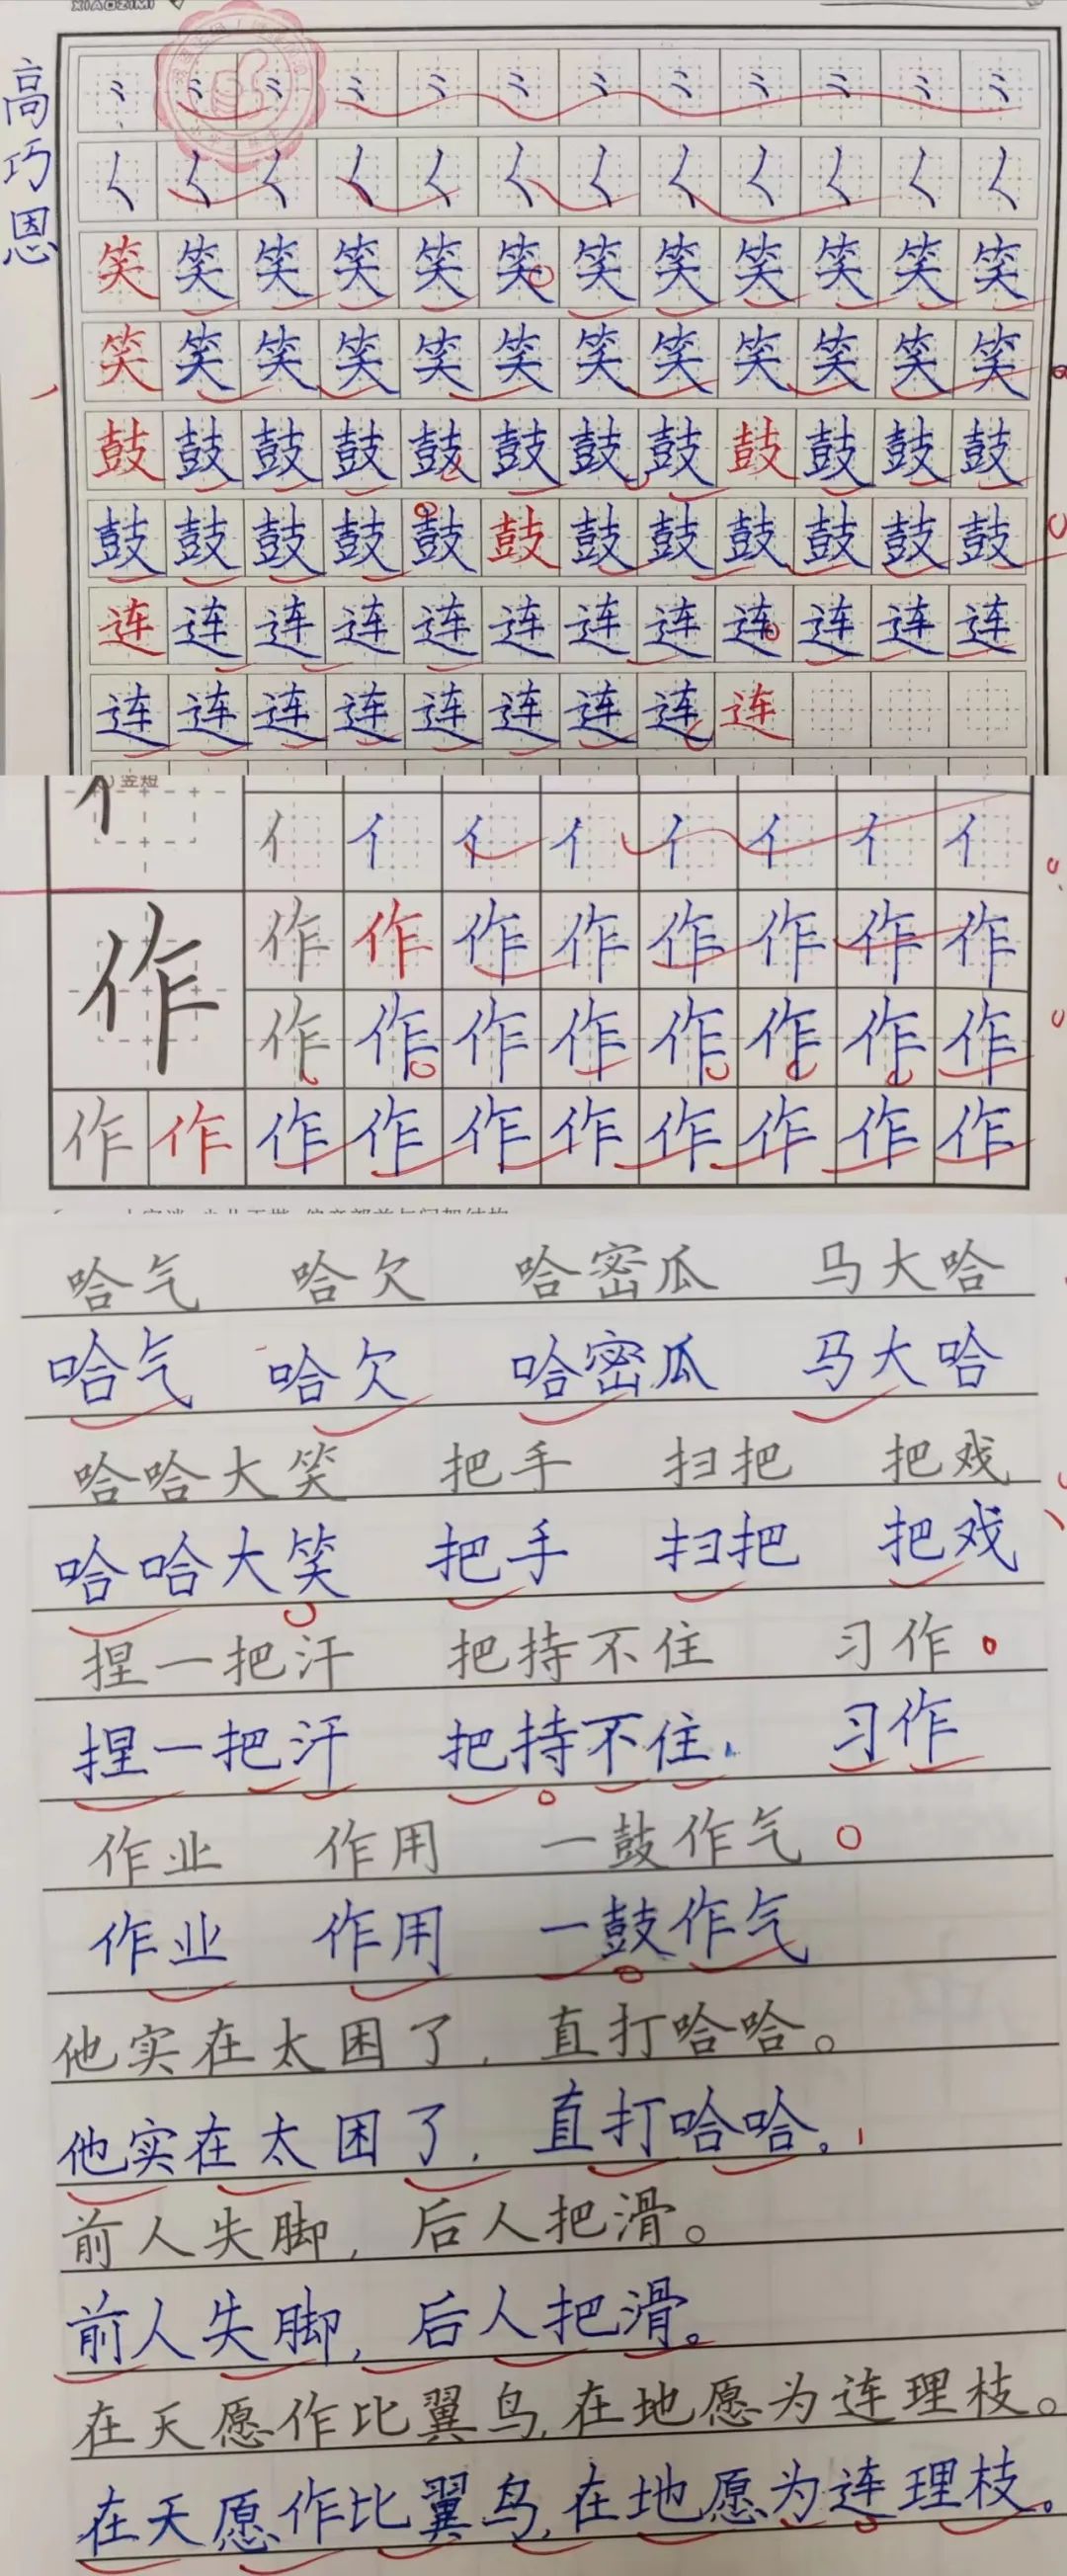 XIAOZIMI
高巧恩
⺀ ⺀ ⺀ ⺀ ⺀ ⺀ ⺀ ⺀ ⺀ ⺀ ⺀ ⺀
く く く く く く く く く く く く
笑 笑 笑 笑 笑 笑 笑 笑 笑 笑 笑 笑
笑 笑 笑 笑 笑 笑 笑 笑 笑 笑 笑 笑
鼓 鼓 鼓 鼓 鼓 鼓 鼓 鼓 鼓 鼓 鼓 鼓
鼓 鼓 鼓 鼓 鼓 鼓 鼓 鼓 鼓 鼓 鼓 鼓
连 连 连 连 连 连 连 连 连 连 连 连
连 连 连 连 连 连 连 连 连
竖短
亻 亻 亻 亻 亻 亻 亻 亻 亻
作 作 作 作 作 作 作 作 作
作 作 作 作 作 作 作 作
作 作 作 作 作 作 作 作 作 作
哈气 哈欠 哈密瓜 马大哈
哈气 哈欠 哈密瓜 马大哈
哈哈大笑 把手 扫把 把戏
哈哈大笑 把手 扫把 把戏
捏一把汗 把持不住 习作
捏一把汗 把持不住 习作
作业 作用 一鼓作气
作业 作用 一鼓作气
他实在太困了,直打哈哈。
他实在太困了,直打哈哈。
前人失脚,后人把滑。
前人失脚,后人把滑。
在天愿作比翼鸟,在地愿为连理枝。
在天愿作比翼鸟,在地愿为连理枝。